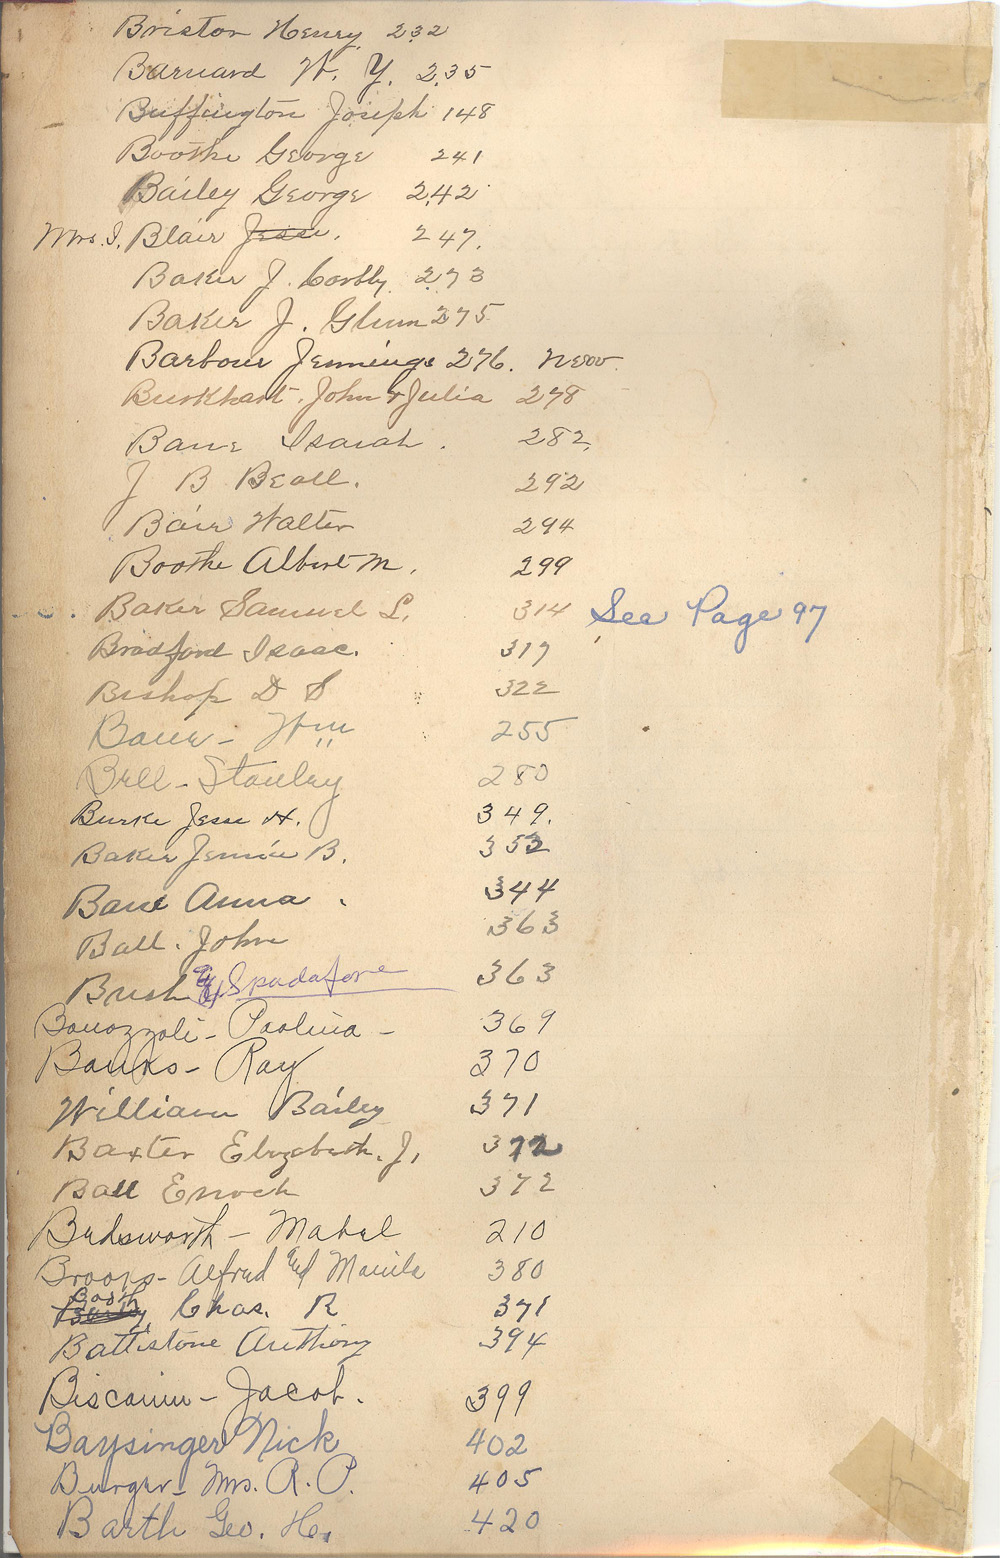 Bristor Henry 232
Barnard W. Y. 235
Buffington Joseph 148
Boothe George 241
Bailey George 242
Mrs. J. Blair Jesse. 247.
Baker J. 273
Baker J. Glenn 275
Barbour Jennings 276. New
Burkhart. John & Julia 278
Bane Isaiah. 282.
J B Beall. 292
Bair Walter 294
Boothe Albert M. 299
Baker Samuel L. 314 See Page 97
Bradford Isaac. 317
Bishop D S 322
Bane - Wm 255
Bell - Stanley 280
Burke Jesse H. 349.
Baker Jennie B. 353
Bane Anna. 344
Ball. John 363
Bush Spadafore 363
Bonozzoli - Paolina - 369
Banks - Ray 370
William Bailey 371
Baxter Elizabeth. J. 372
Ball Enoch 372
Bedsworth - Mabel 210
Alfred 380
Booth Chas. R 371
Battistone Anthony 394
Jacob. 399
Baysinger Nick 402
Burger - Mrs. R. P. 405
Barth Geo. He. 420